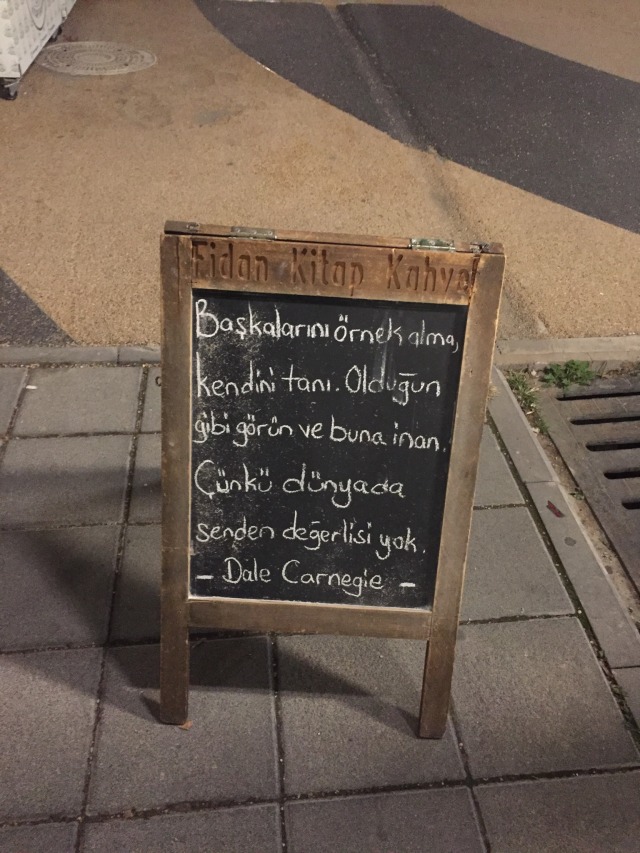 Fidan Kitap Kahve
Başkalarını örnek alma,
kendini tanı. Olduğun
gibi görün ve buna inan.
Çünkü dünyada
senden değerlisi yok.
- Dale Carnegie -